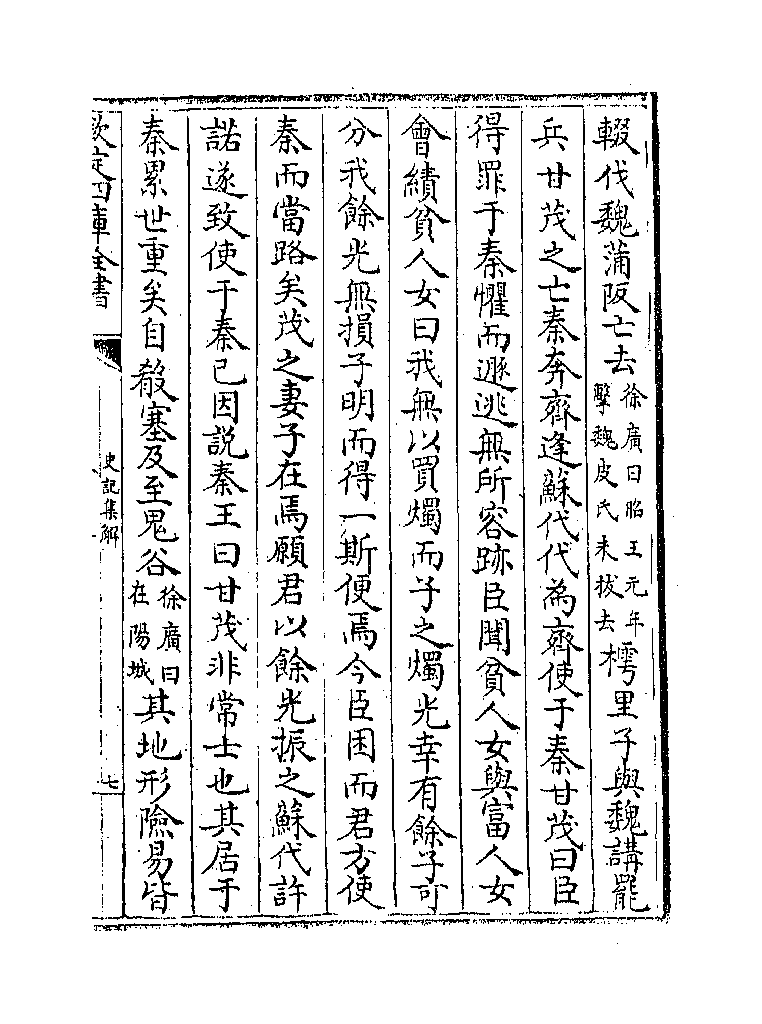 輟伐魏蒲阪亡去徐廣曰昭王元年擊魏皮氏未拔去樗里子與魏講罷
兵甘茂之亡秦奔齊逢蘇代代為齊使于秦甘茂曰臣
得罪于秦懼而遯逃無所容跡臣聞貧人女與富人女
會績貧人女曰我無以買燭而子之燭光幸有餘子可
分我餘光無損子明而得一斯便焉今臣困而君方使
秦而當路矣茂之妻子在焉願君以餘光振之蘇代許
諾遂致使于秦已因説秦王曰甘茂非常士也其居于
秦累世重矣自殽塞及至鬼谷徐廣曰在陽城其地形險易皆
欽定四庫全書
史記集解
七